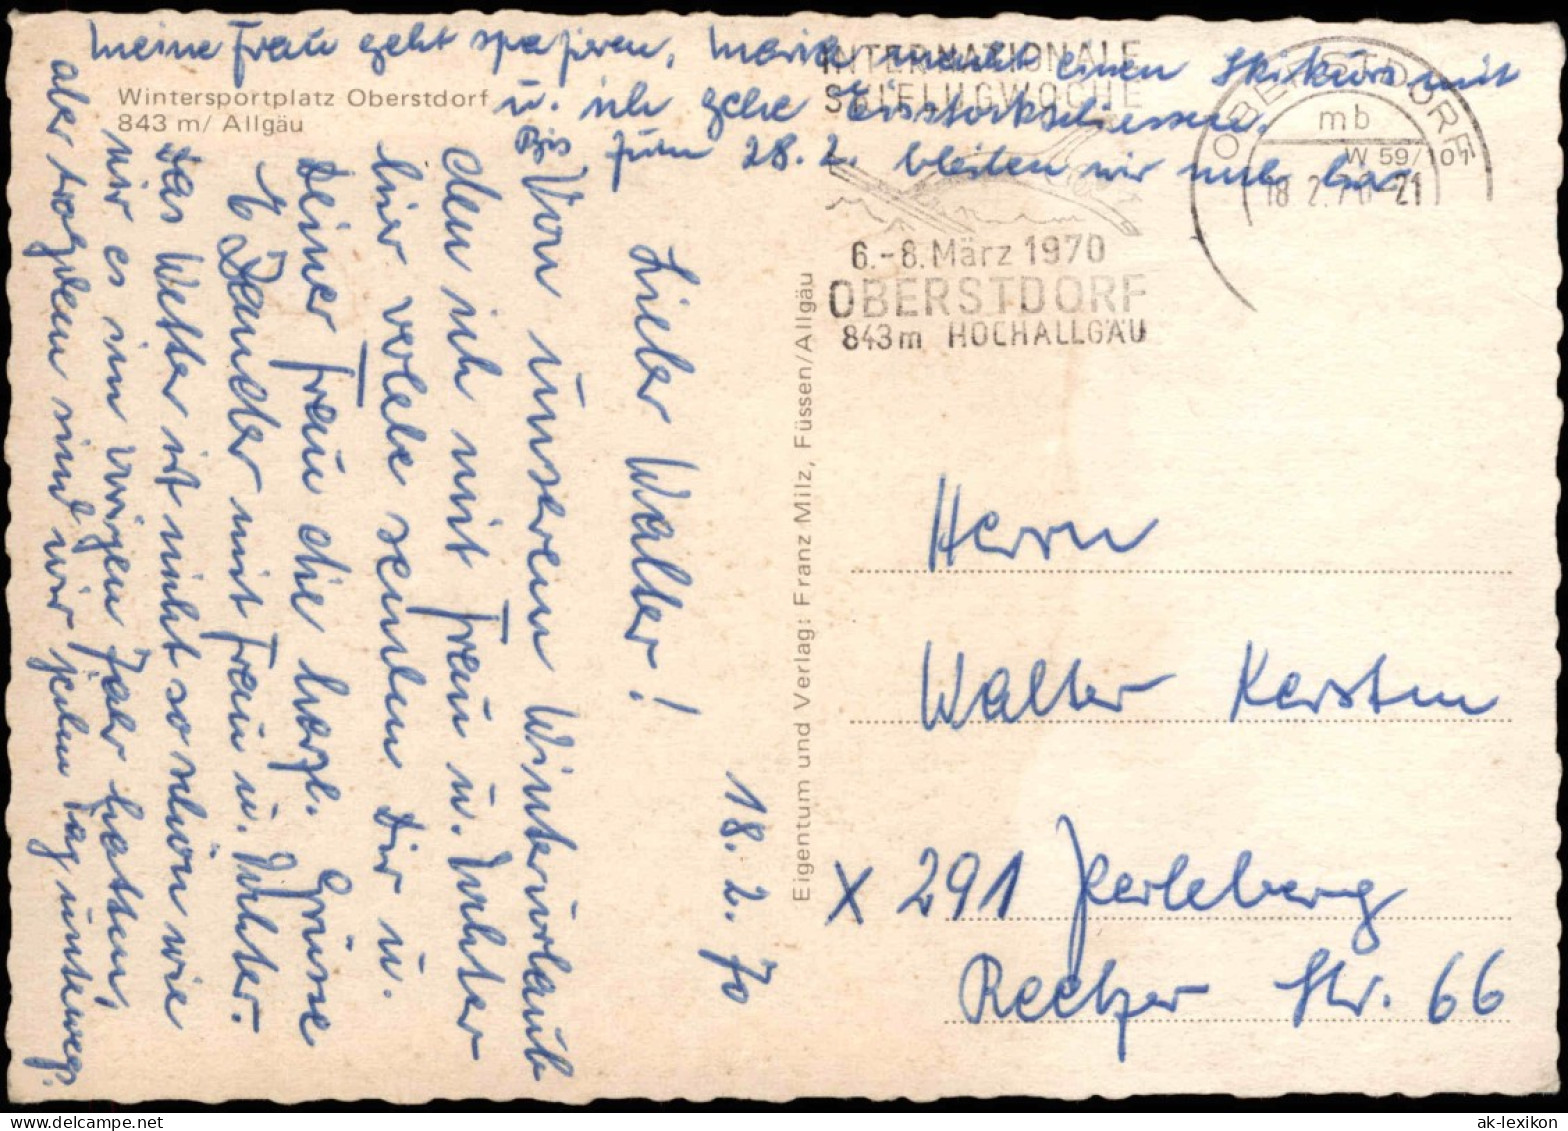 Wintersportplatz Oberstdorf
843 m/ Allgäu
18. 2. 70
Lieber Walter!
Von unserem Winterurlaub
den ich mit Frau u. Tochter
hier verlebe senden Dir u.
Deiner Frau die herzl. Grüsse
mit Frau u. Tochter.
Das Wetter ist nicht so schön wie
wir es im vorigen Jahr hatten,
aber trotzdem sind wir jeden Tag unterwegs.
Meine Frau geht spazieren, macht einen Skikurs mit
u. ich gehe Eisstockschiessen.
Bis zum 28. 2. bleiben wir noch hier
INTERNATIONALE
SKIFLUGWOCHE
6.-8. März 1970
OBERSTDORF
843m HOCHALLGÄU
OBERSTDORF
mb
W 59/101
18 2.70-21
Eigentum und Verlag: Franz Milz, Füssen/Allgäu
Herrn
Walter Kersten
X 291 Perleberg
Reetzer Str. 66
ak-lexikon